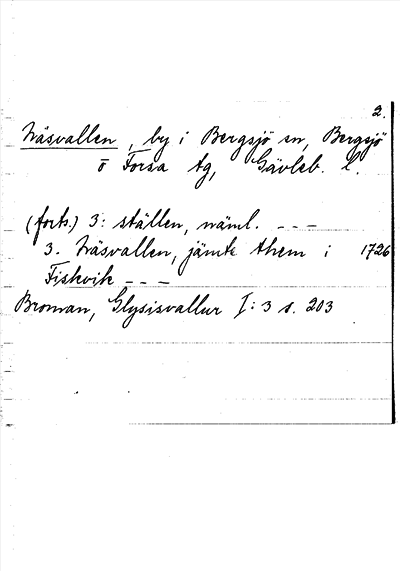 2.
Näsvallen, by i Bergsjö sn, Bergsjö
o Forsa tg, Gävleb. l.
(forts.) 3: ställen, näml. - - -
3. Näsvallen, jämte them i 1726
Fiskvik - - -
Broman, Glysisvallur I: 3 s. 203